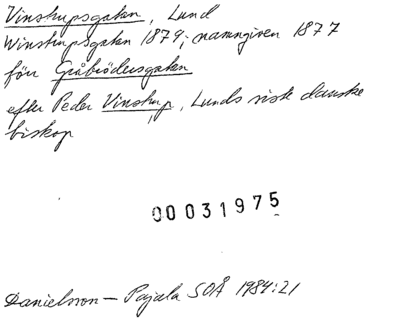 Vinstrupsgatan, Lund
Winstrupsgatan 1879; namngiven 1877
förr Gråbrödersgatan
efter Peder Vinstrup, Lunds siste danske
biskop
00031975
Danielsson - Pajala SOÅ 1984:21